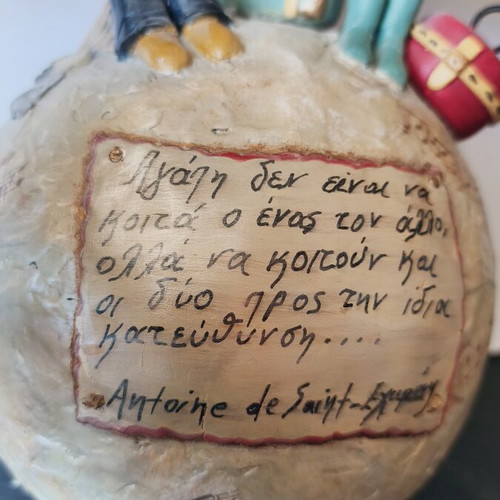 Αγάπη δεν είναι να
κοιτά ο ένας τον άλλο,
αλλά να κοιτούν και
οι δύο προς την ίδια
κατεύθυνση....
Antoine de Saint-